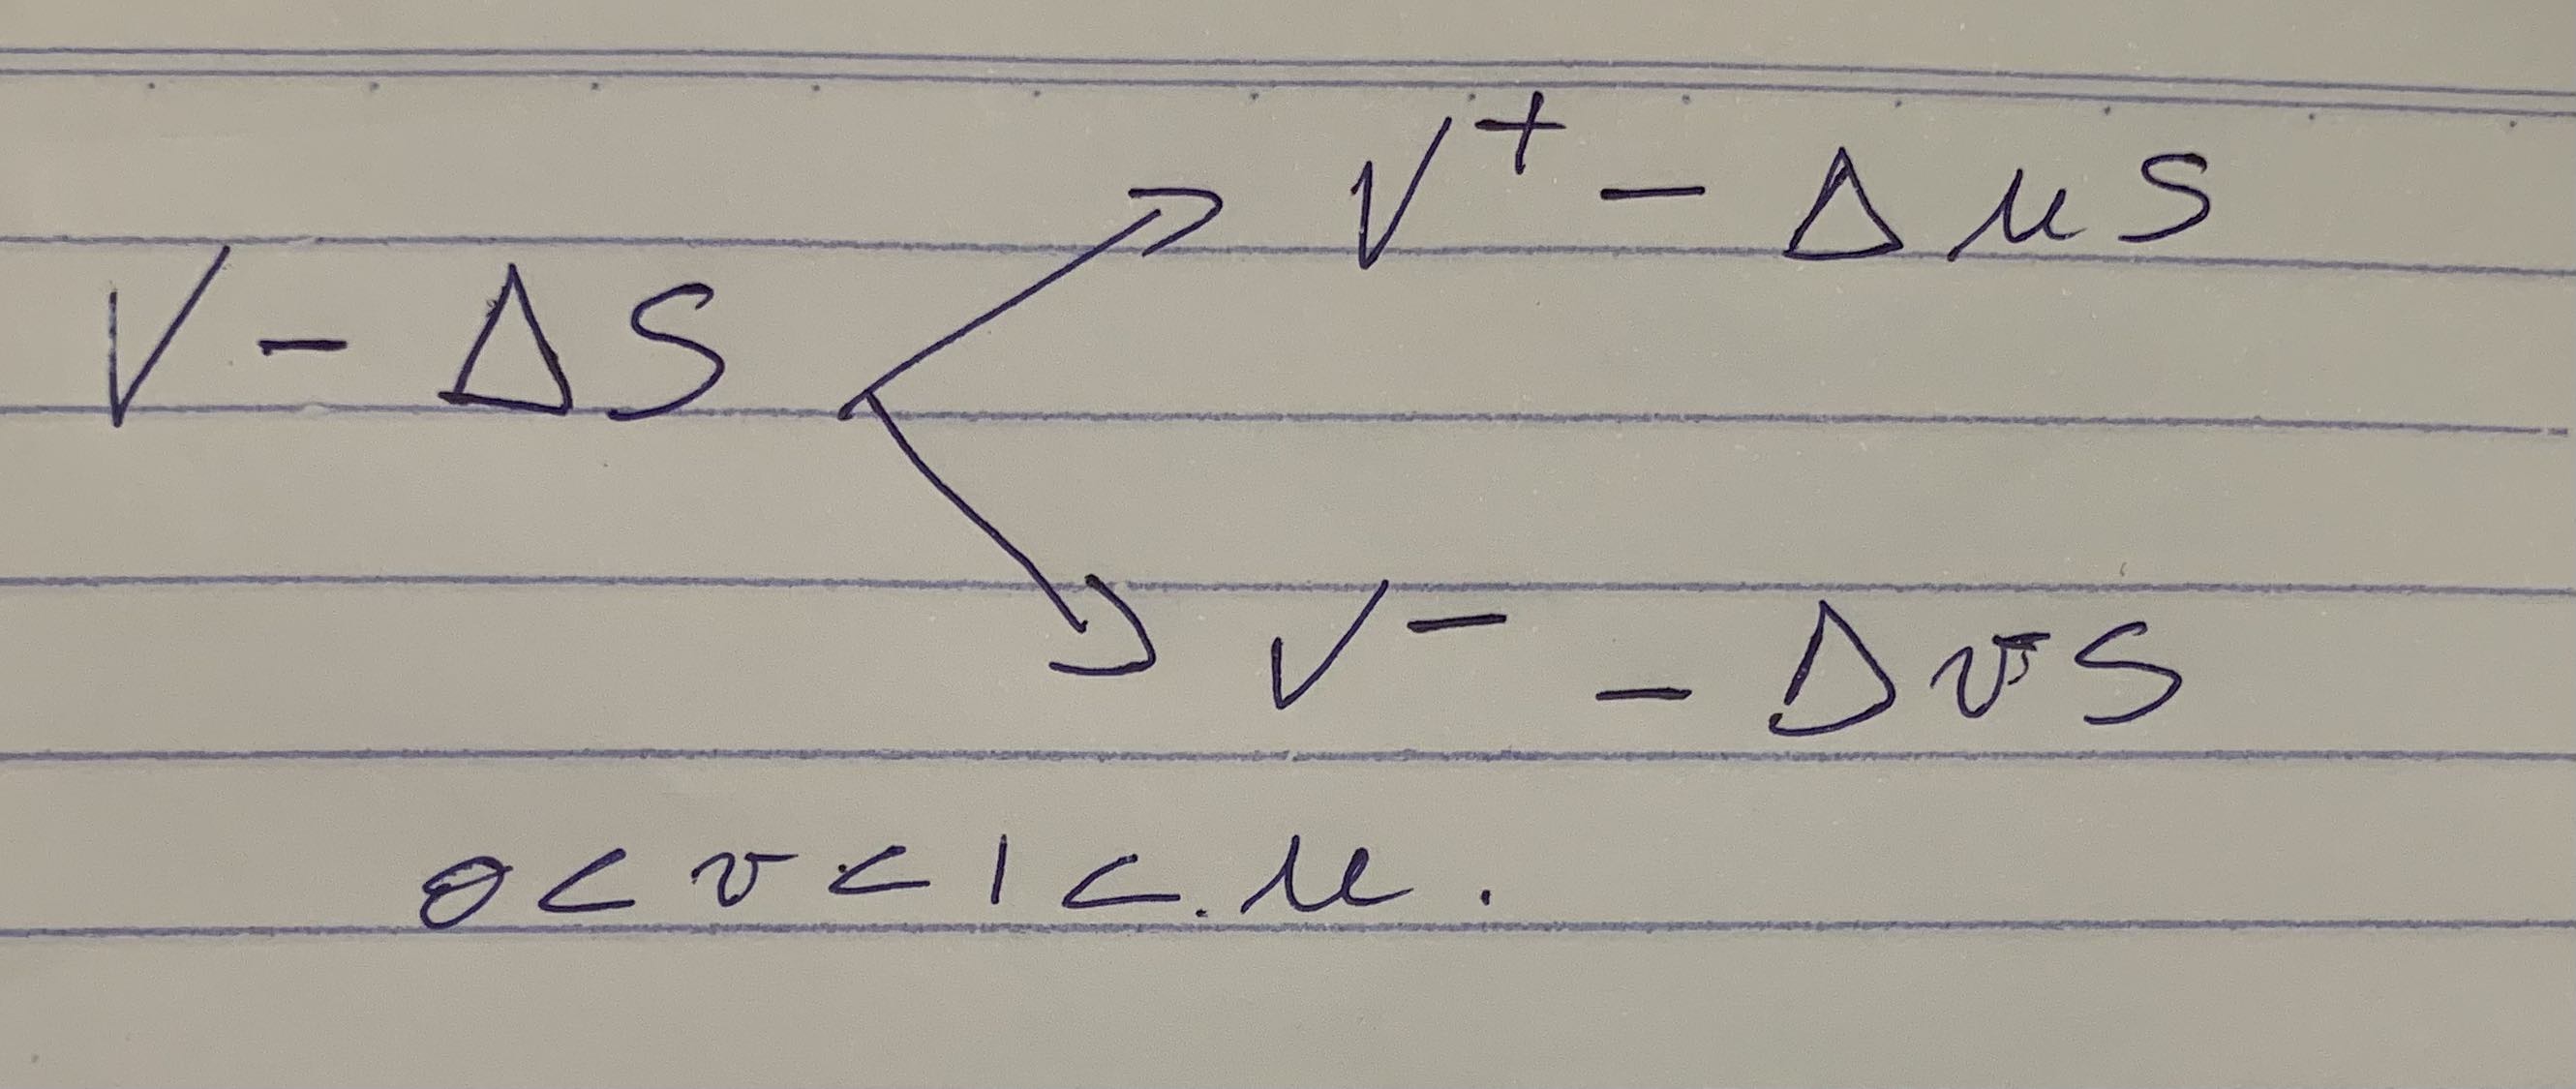 V⁺ - Δ μ S
V - Δ S
V⁻ - Δ v S
0 < v < 1 < . μ .